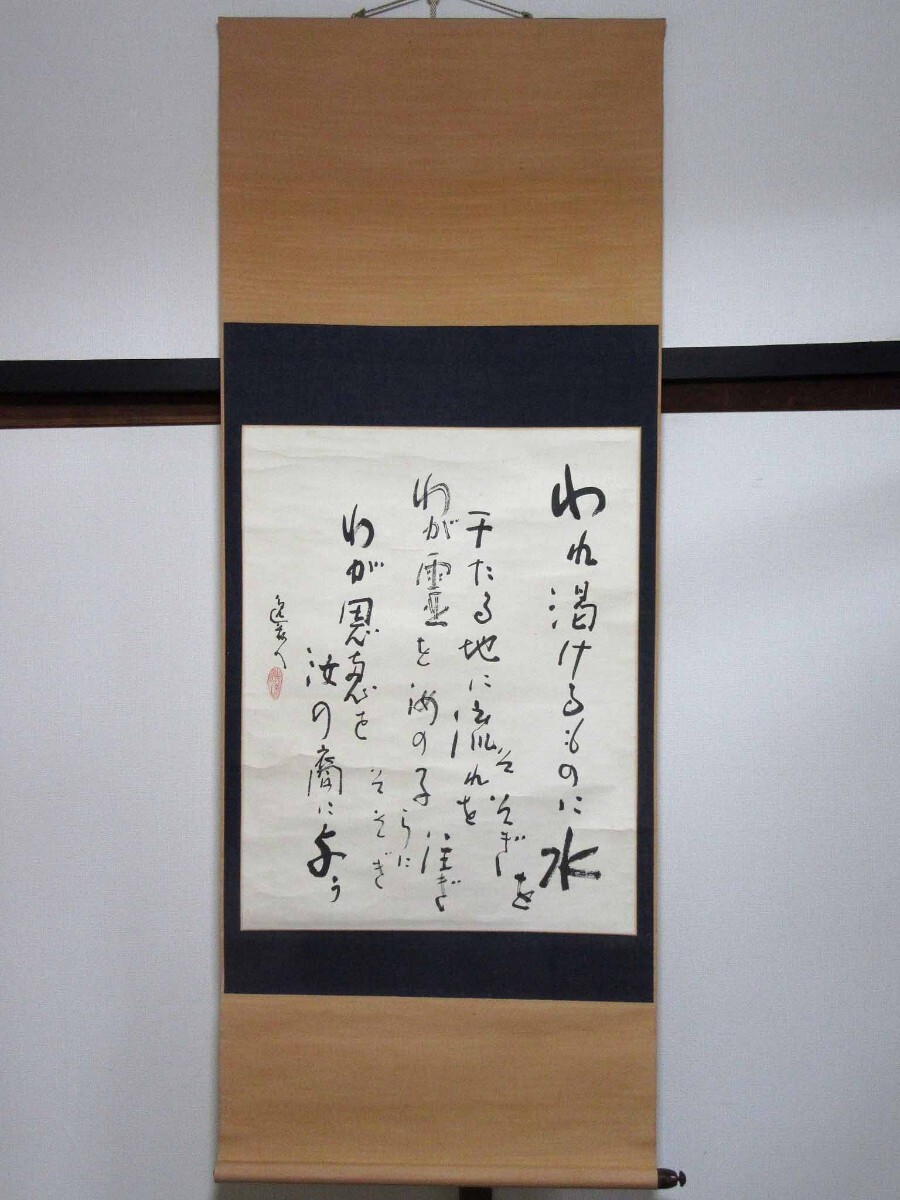 われ渇けるものに水
を
そゝぎ
干たる地に流れを
わが靈を汝の子らに
注ぎ
わが恩恵を
そそぎ
汝の裔に与う